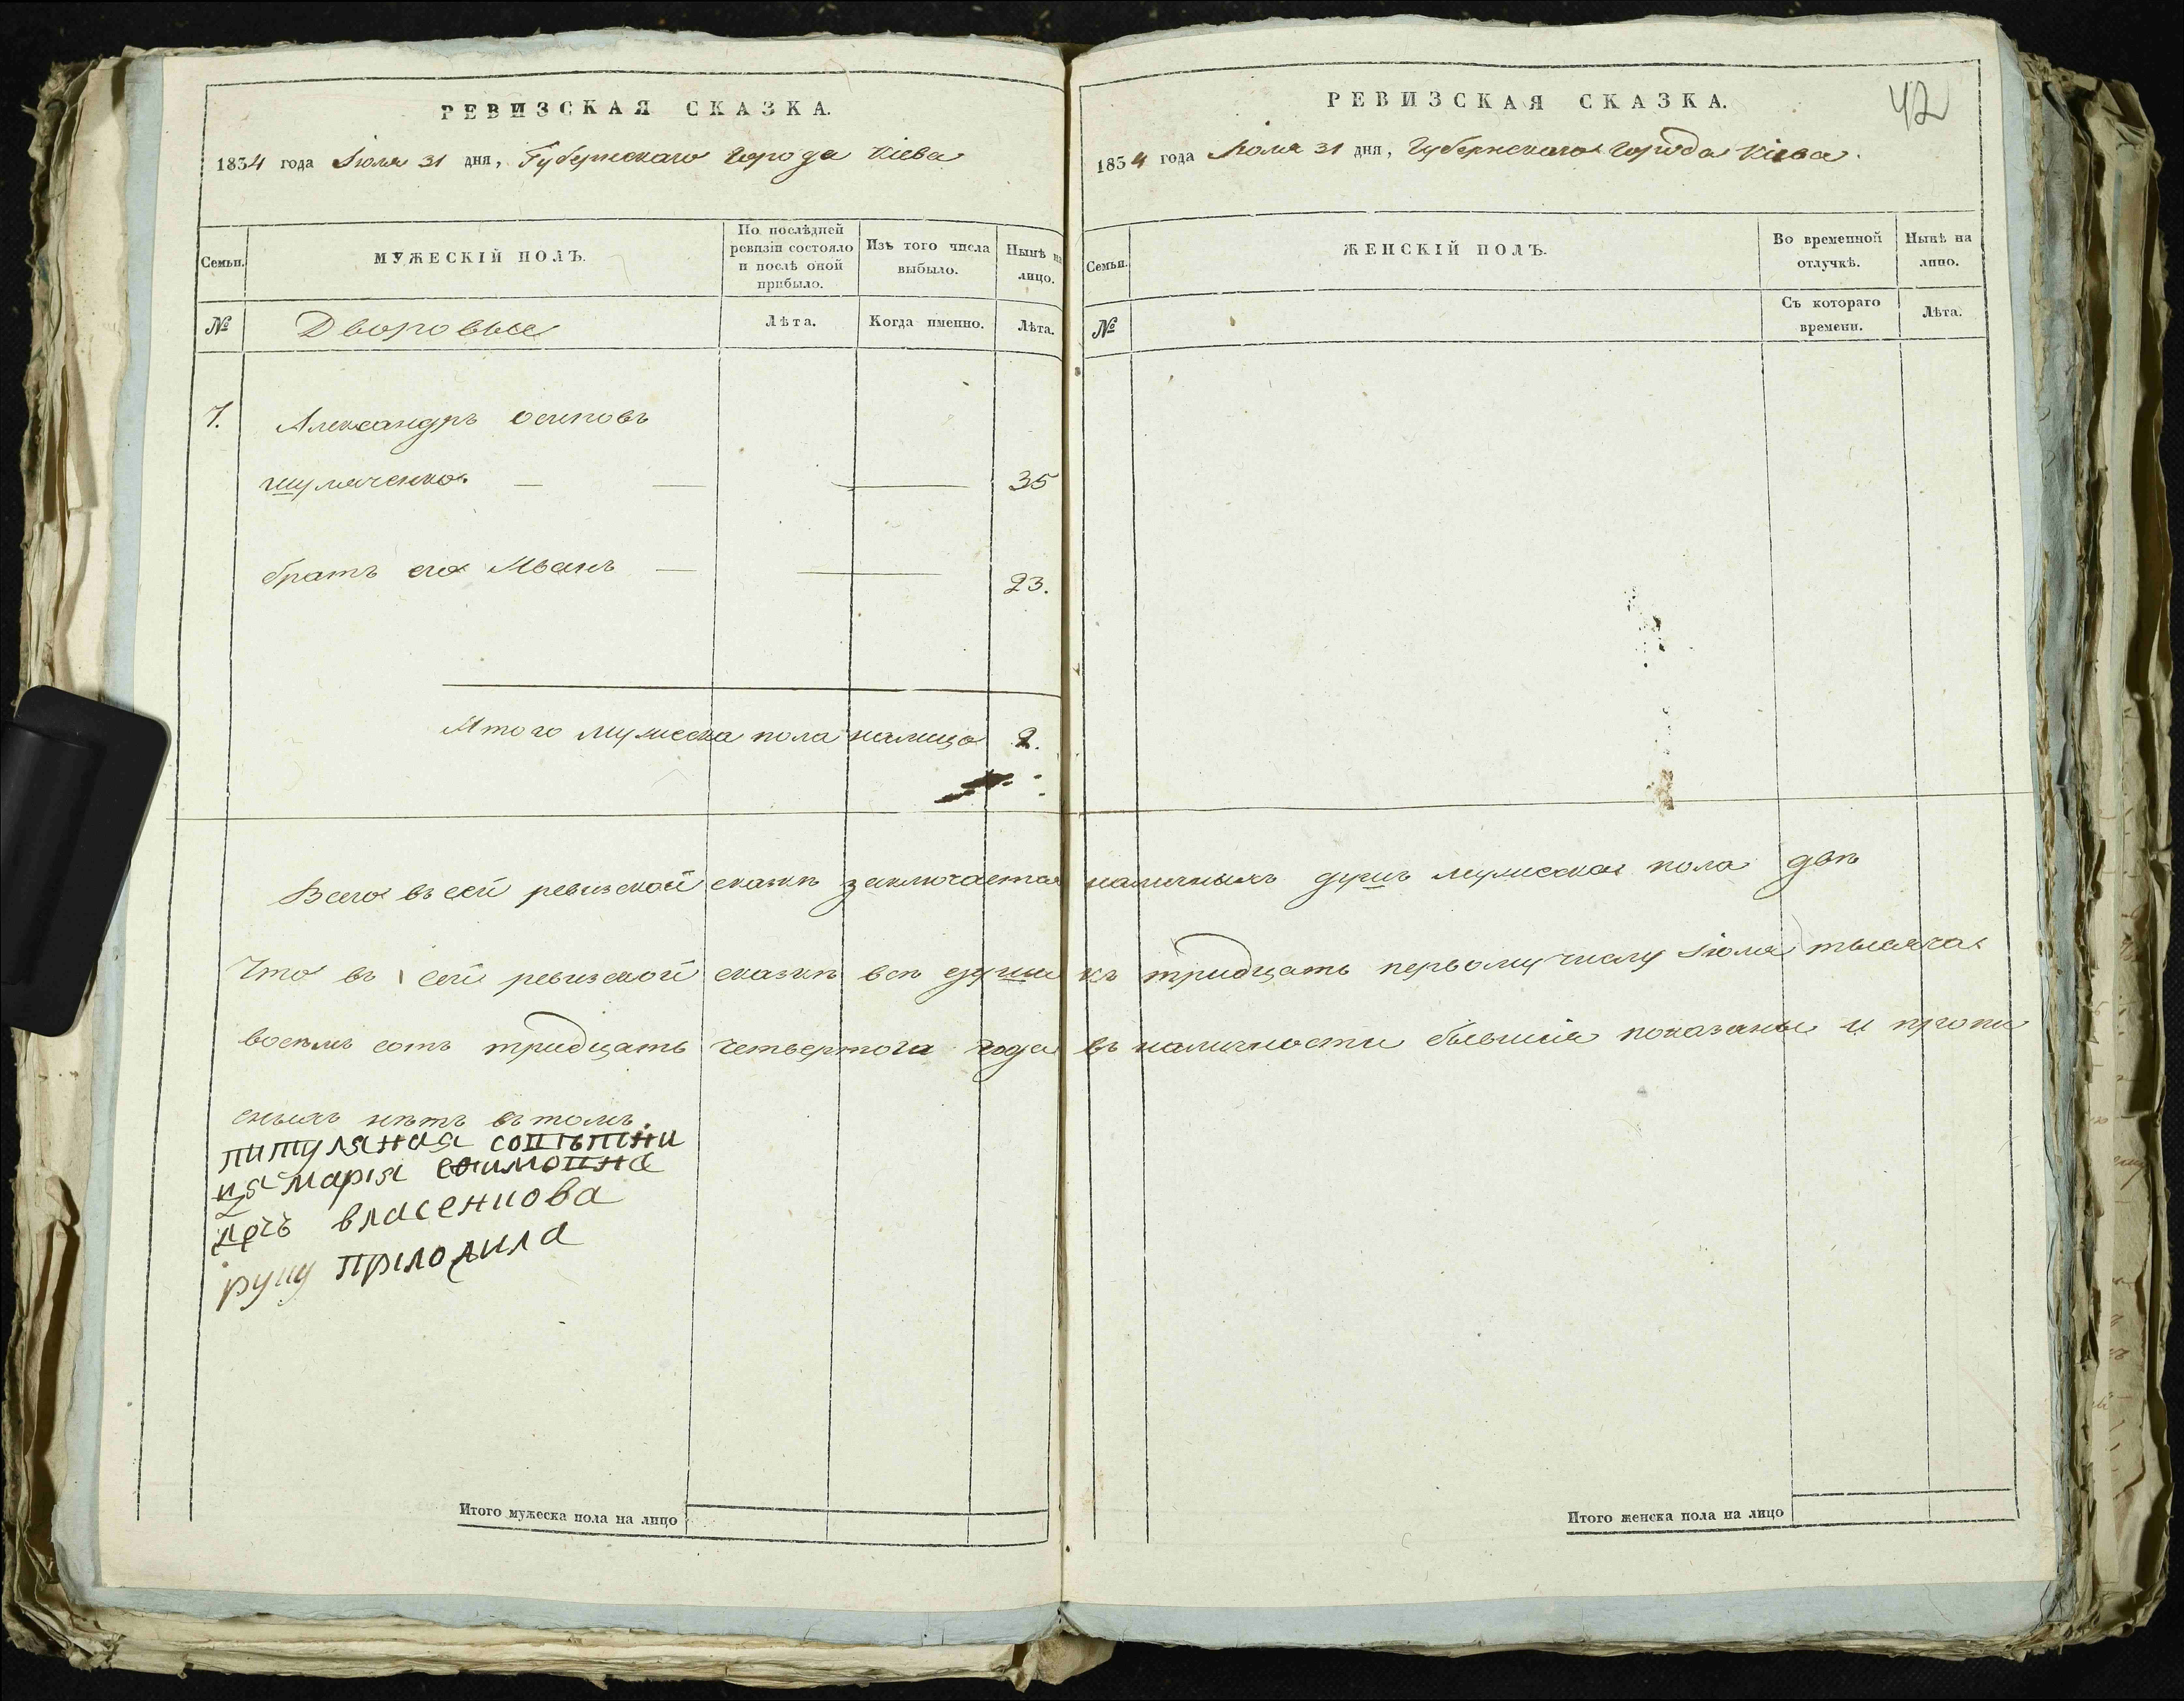 РЕВИЗСКАЯ СКАЗКА.
1834 года Іюля 31 дня, Губернскаго города Кіева
Семьи.
МУЖЕСКІЙ ПОЛЪ.
По послѣдней ревизіи состояло и послѣ оной прибыло.
Изъ того числа выбыло.
Нынѣ на лицо.
№
Дворовые
Лѣта.
Когда именно.
Лѣта.
7.
Александръ Осиповъ
Шумаченко — — — 35
братъ его Иванъ — — 23.
Итого мужеска пола налицо 2.
РЕВИЗСКАЯ СКАЗКА.
42
1834 года Іюля 31 дня, Губернскаго города Кіева.
Семьи.
ЖЕНСКІЙ ПОЛЪ.
Во временной отлучкѣ.
Нынѣ на лицо.
№
Съ котораго времени.
Лѣта.
Всего въ сей ревизской сказкѣ заключается наличныхъ душъ мужеска пола двѣ
Что въ сей ревизской сказкѣ всѣ души къ тридцать первому числу Іюля тысяча
восемь сотъ тридцать четвертого года въ наличности бывшія показаны и пропи
сныхъ нѣтъ въ томъ.
титулярная совѣтни
ца Марія
дочъ власенкова
руку приложила
Итого мужеска пола на лицо
Итого женска пола на лицо